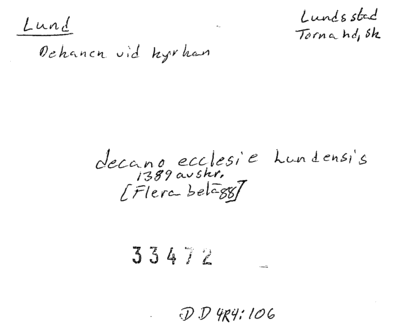 Lund
Lunds stad
Torna hd, Sk
Dekanen vid kyrkan
decano ecclesie Lundensis
1389 avskr.
[Flera belägg]
33472
DD 4R4:106